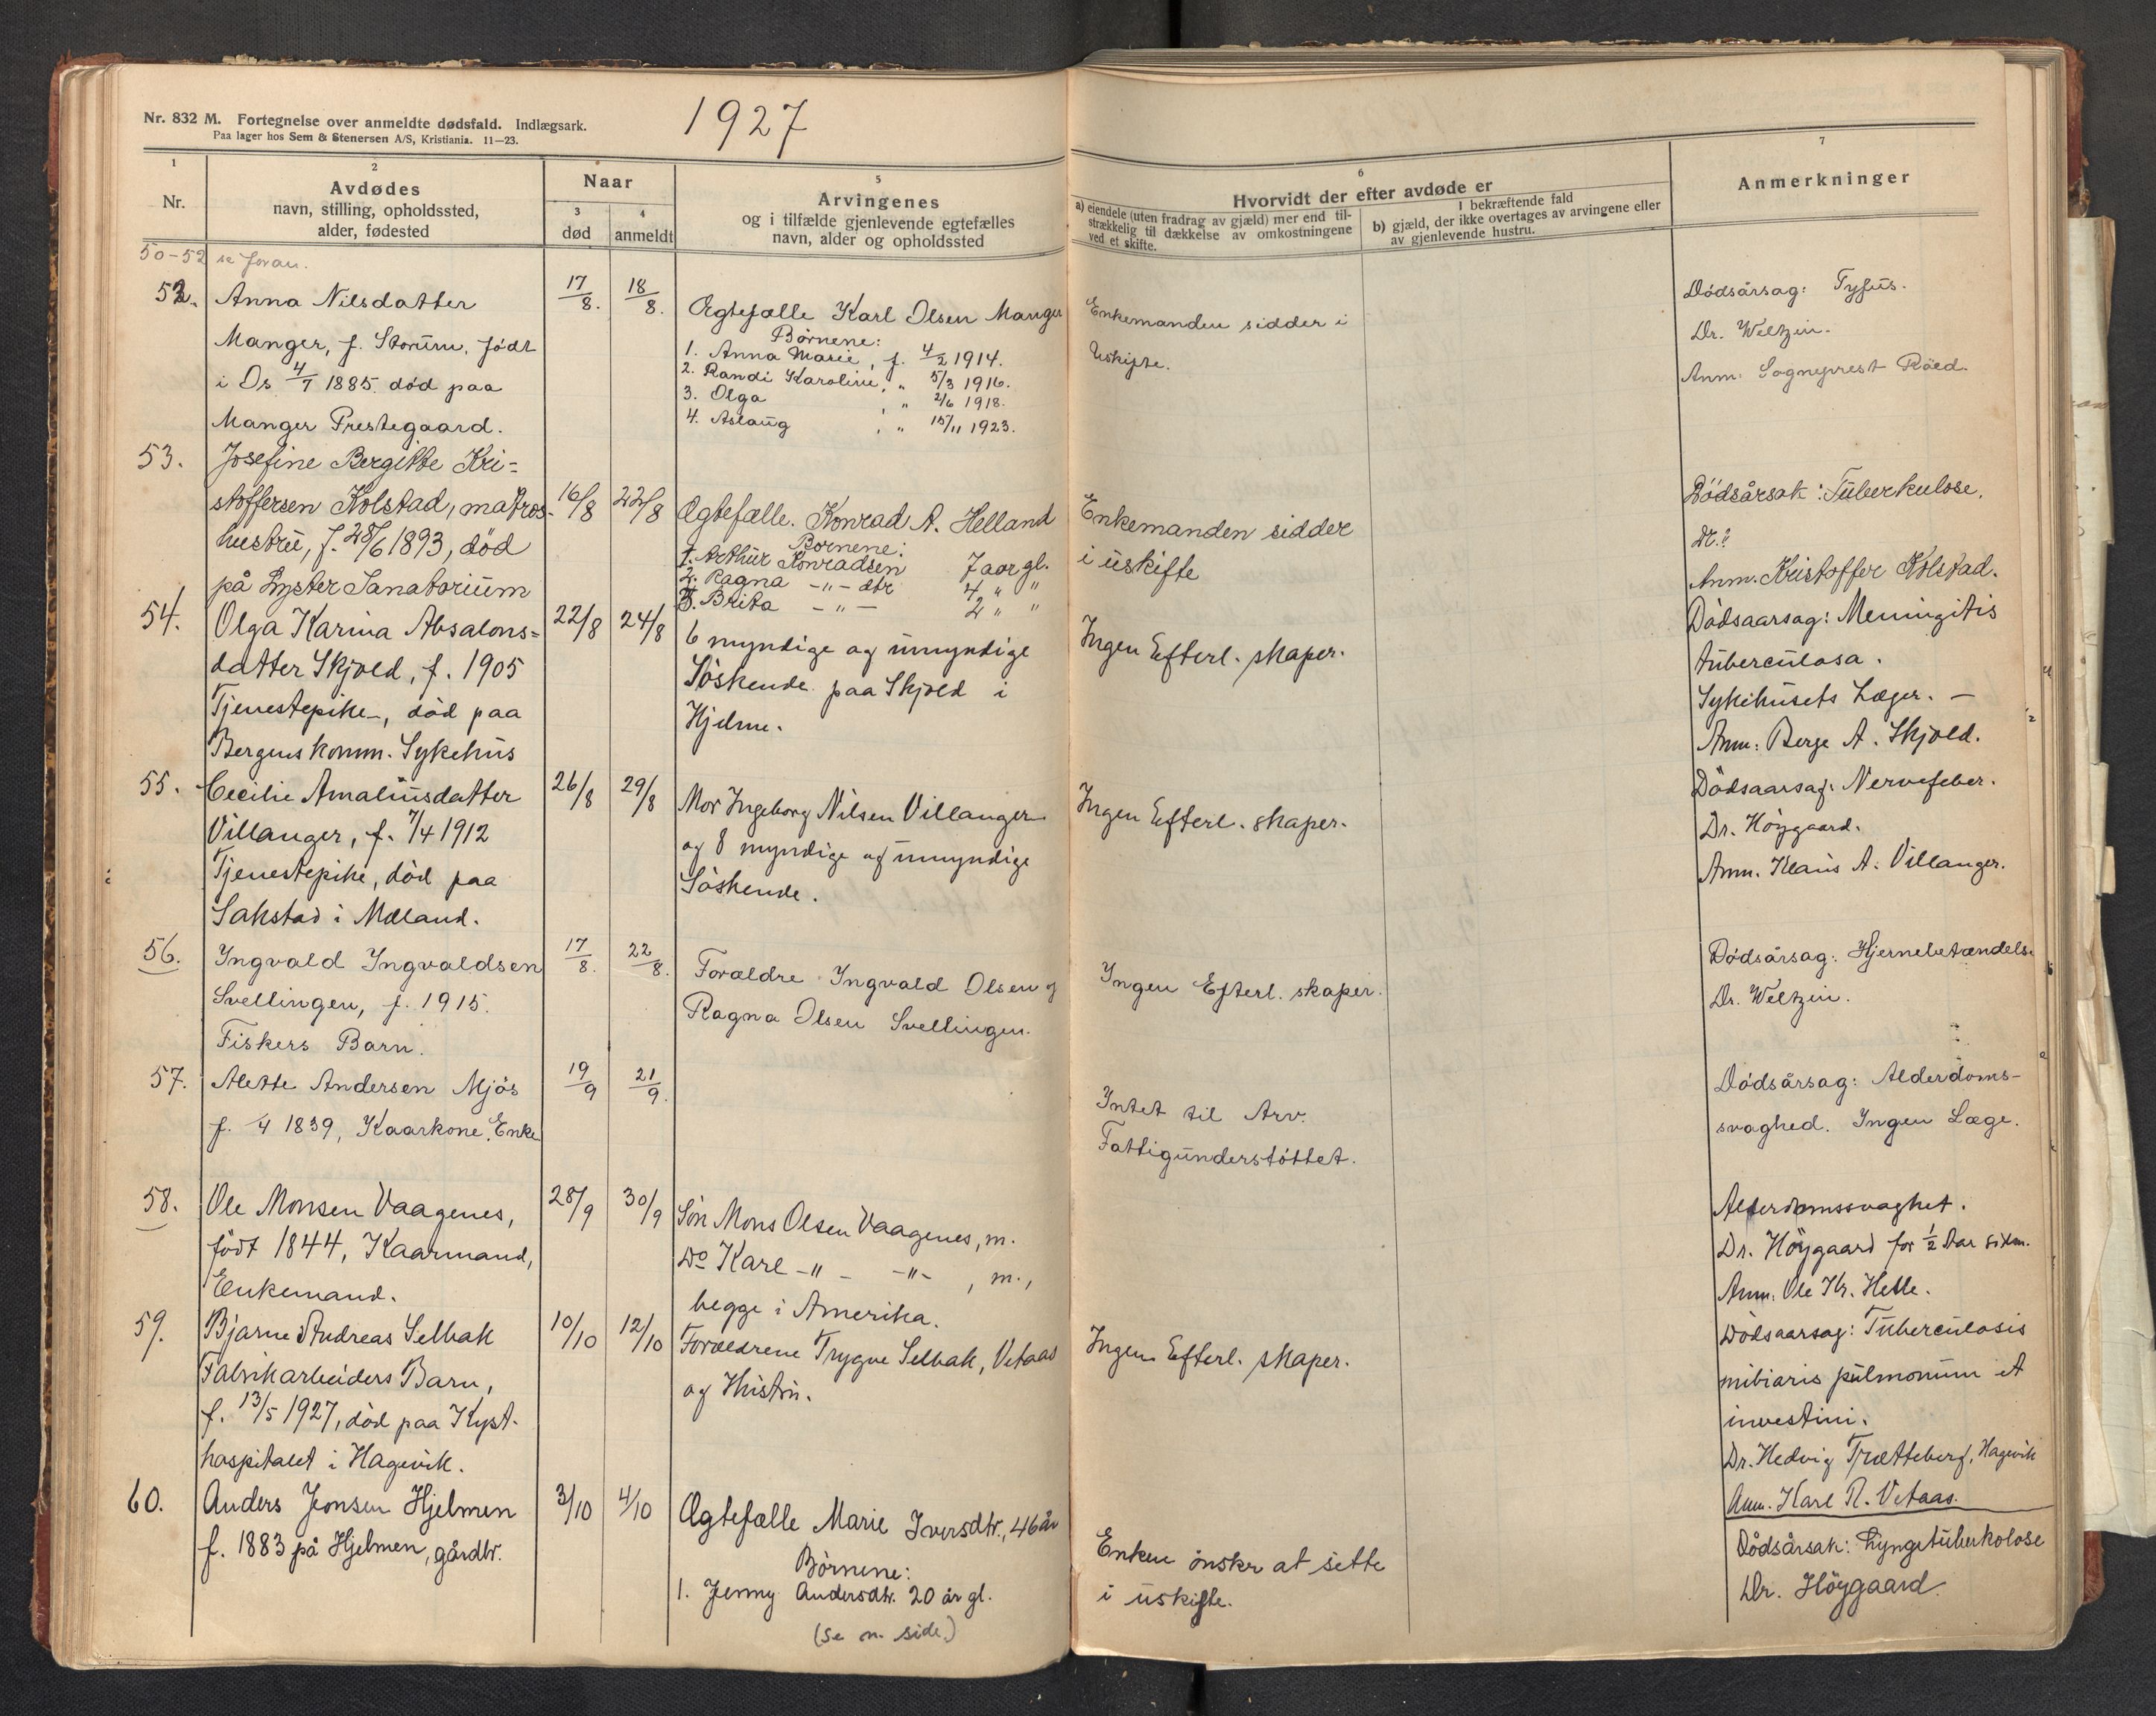 Nr. 832 M. Fortegnelse over anmeldte dødsfald. Indlægsark.
Paa lager hos Sem & Stenersen A/S, Kristiania. 11—23.
1927
1
Nr.
2
Avdødes
navn, stilling, opholdssted,
alder, fødested
Naar
3
død
4
anmeldt
5
Arvingenes
og i tilfælde gjenlevende egtefælles
navn, alder og opholdssted
6
Hvorvidt der efter avdøde er
a) eiendele (uten fradrag av gjæld) mer end til-
strækkelig til dækkelse av omkostningene
ved et skifte.
I bekræftende fald
b) gjæld, der ikke overtages av arvingene eller
av gjenlevende hustru.
7
Anmerkninger
50-52 se foran.
52. Anna Nilsdatter
Manger, f. Storum, født
i Os 4/7 1885. død paa
Manger Prestegaard.
17/8. 18/8.
Ægtefælle Karl Olsen Manger
Børnene:
1. Anna Marie, f. 4/2 1914.
2. Randi Karoline, " 5/3 1916.
3. Olga , " 2/6 1918.
4. Aslaug , " 15/11 1923.
Enkemanden sidder i
Uskifte.
Dødsårsag: Tyfus.
Dr. Weltzin.
Anm. Sogneprest Røed.
53. Josefine Bergitte Kri=
stoffersen Kolstad, matros-
hustru, f. 28/6 1893, død
på Lyster Sanatorium
16/8 22/8
Ægtefælle. Konrad A. Helland
Børnene:
1. Arthur Konradsen 7 aar gl.
2. Ragna -"- dtr 4 " "
3. Brita -"- 2 " "
Enkemanden sidder
i uskifte
Dödsårsak: Tuberkulose.
Dr.?
Anm. Kristoffer Kolstad.
54. Olga Karina Absalons=
datter Skjold, f. 1905
Tjenestepike, död paa
Bergens komm. Sykehus
22/8 24/8
6 myndige og umyndige
Söskende paa Skjold i
Hjelme.
Ingen Efterl. skaper.
Dödsaarsag: Meningitis
tuberculosa.
Sykehusets Læger. —
Anm: Berge A. Skjold.
55. Cecilie Amaliusdatter
Villanger, f. 7/4 1912
Tjenestepike, död paa
Sakstad i Mæland.
26/8 29/8
Mor Ingeborg Nilsen Villanger
og 8 myndige og umyndige
Söskende.
Ingen Efterl. skaper.
Dödsaarsag: Nervefeber.
Dr. Höygaard.
Anm. Klaus A. Villanger.
56. Ingvald Ingvaldsen
Svellingen, f. 1915.
Fiskers Barn.
17/8. 22/8.
Forældre Ingvald Olsen og
Ragna Olsen Svellingen.
Ingen Efterl. skaper.
Dødsårsag: Hjernebetændelse
Dr. Weltzin.
57. Alette Andersen Mjös
f. /4 1839, Kaarkone. Enke
19/9 21/9.
Intet til Arv.
Fattigunderstöttet.
Dødsårsag: Alderdoms-
svaghed. Ingen Læge.
58. Ole Monsen Vaagenes,
födt 1844, Kaarmand,
Enkemand.
28/9 30/9
Sön Mons Olsen Vaagenes, m.
Do Karl -"- -"- , m.,
begge i Amerika.
Alderdomssvaghet.
Dr. Höygaard for 1/2 Aar siden.
Anm. Ole Kr. Helle.
59. Bjarne Andreas Selbak
Fabrikarbeiders Barn,
f. 13/5 1927, död paa Kyst-
hospitalet i Hagevik.
10/10 12/10
Forældrene Trygve Selbak, Vetaas
og Hustru.
Ingen Efterl. skaper.
Dödsaarsag: Tuberculosis
miliaris pulmonum et
investini.
Dr. Hedvig Trætteberg, Hagevik
Anm. Karl R. Vetaas.
60. Anders Jonsen Hjelmen
f. 1883 på Hjelmen, gårdbr.
3/10 4/10
Ægtefælle Marie Iversdtr., 46 år
Børnene:
1. Jenny Andersdtr. 20 år gl.
(se n. side.)
Enken ønsker at sitte
i uskifte.
Dødsårsak: Lungetuberkolose
Dr. Höygaard.